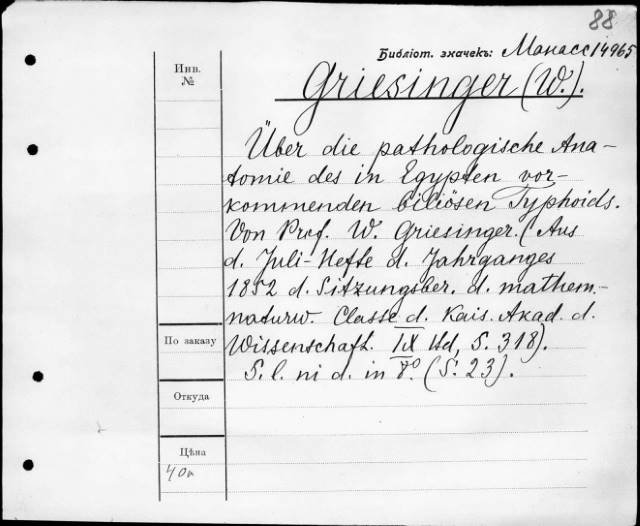 88
Библіот. значекъ: Манасс14965
Инв.
№
Griesinger (W.).
Über die pathologische Ana-
tomie des in Egypten vor-
kommenden biliösen Typhoids.
Von Prof. W. Griesinger. (Aus
d. Juli-Hefte d. Jahrganges
1852 d. Sitzungsber. d. mathem.-
naturw. Classe d. Kais. Akad. d.
По заказу
Wissenschaft. IX Bd, S. 318).
S. l. ni d. in 8º. (S. 23).
Откуда
Цѣна
40к